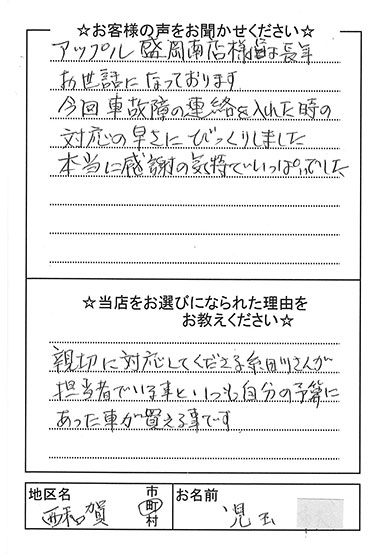 ☆お客様の声をお聞かせください☆
アップル盛岡南店様には長年
お世話になっております
今回車故障の連絡を入れた時の
対応の早さにびっくりしました
本当に感謝の気持でいっぱいでした
☆当店をお選びになられた理由を
お教えください☆
親切に対応してくださる糸田川さんが
担当者でいる事といつも自分の予算に
あった車が買える事です
地区名
西和賀
市
町
村
お名前
児玉